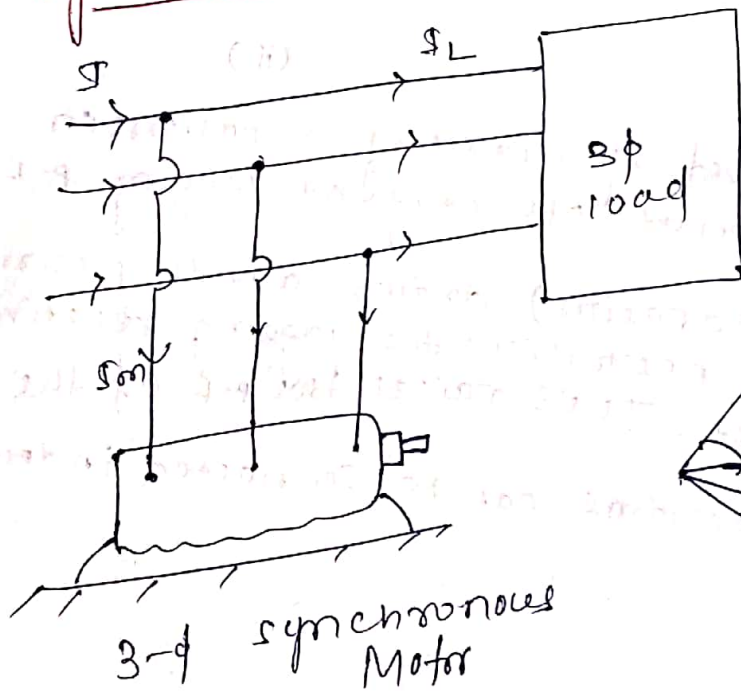 I
I_L
3φ
load
I_m
3-φ synchronous
Motor